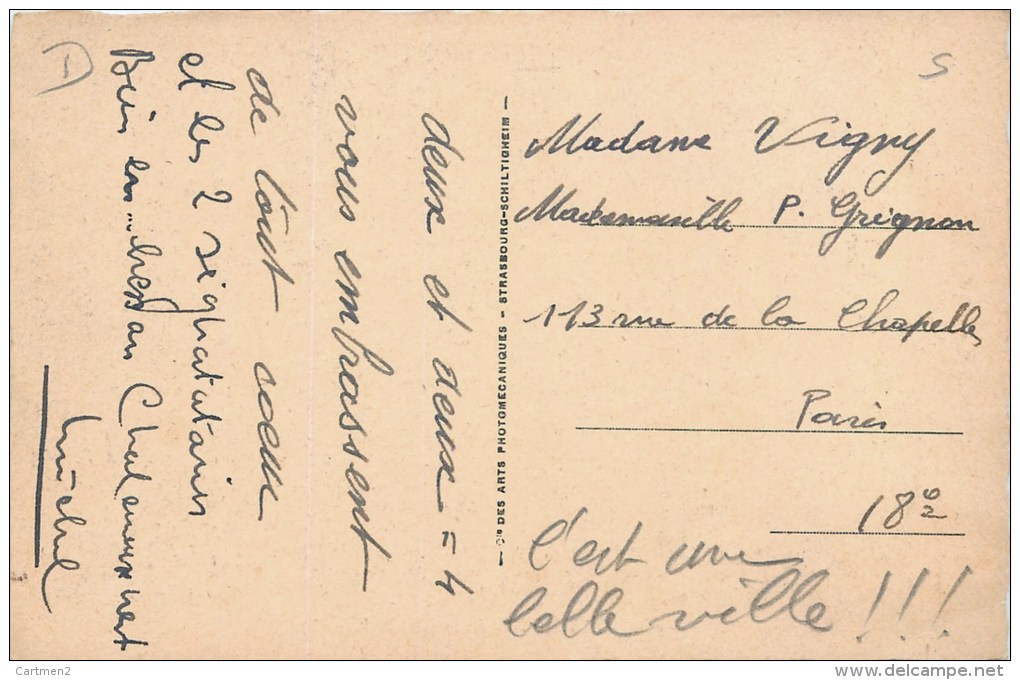 deux et deux = 4
vous embrassent
de tout cœur
et les 2 signataires
Bien Chaleureusement
Michel
— Cie DES ARTS PHOTOMECANIQUES - STRASBOURG-SCHILTIGHEIM —
S
Madame Vigny
Mademoiselle P. Grignon
113 rue de la Chapelle
Paris
18e
C'est une
belle ville !!!
Cartmen2
www.delcampe.net